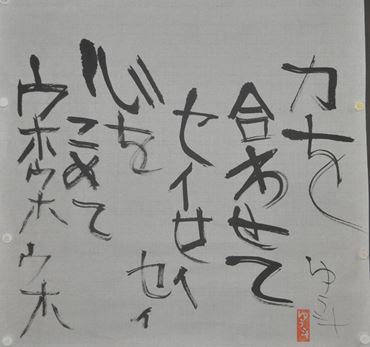 力を
合わせて
セイセイ
セイ
心を
こめて
ウホウホウホ
ゆう斗